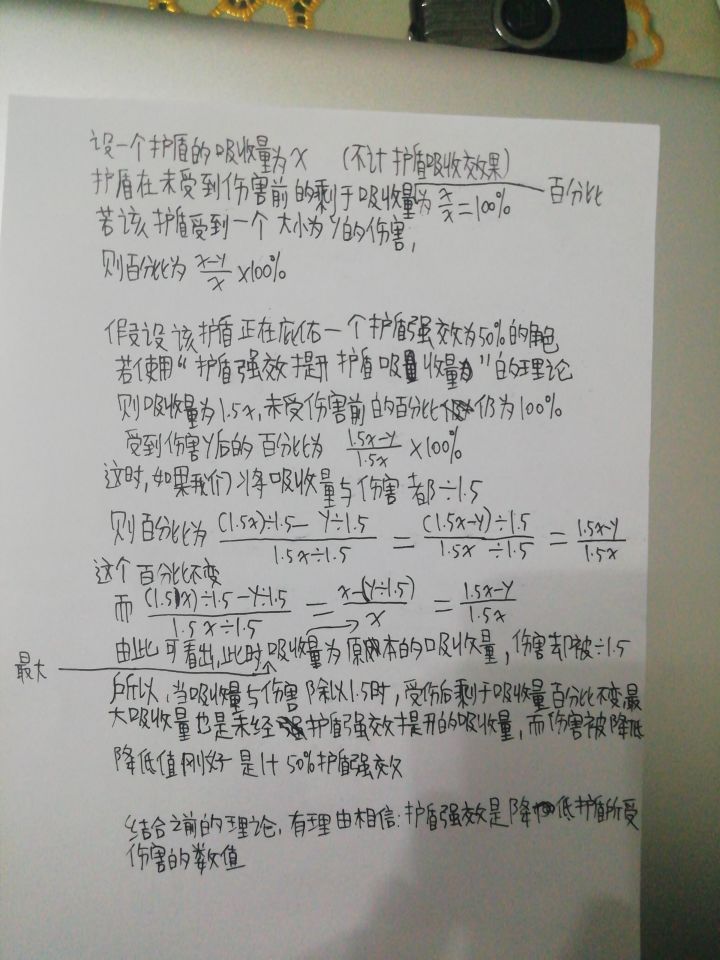 设一个护盾的吸收量为x (不计护盾吸收效果)
护盾在未受到伤害前的剩于吸收量为x/x=100% 百分比
若该护盾受到一个大小为y的伤害,
则百分比为 (x-y)/x ×100%
假设该护盾正在庇佑一个护盾强效为50%的角色
若使用“护盾强效提升护盾吸收量”的理论
则吸收量为1.5x,未受伤害前的百分比仍为100%
受到伤害y后的百分比为 (1.5x-y)/1.5x ×100%
这时,如果我们将吸收量与伤害都÷1.5
则百分比为 ((1.5x)÷1.5-y÷1.5)/(1.5x÷1.5) = ((1.5x-y)÷1.5)/(1.5x÷1.5) = (1.5x-y)/1.5x
这个百分比不变
而 ((1.5x)÷1.5-y÷1.5)/(1.5x÷1.5) = (x-(y÷1.5))/x = (1.5x-y)/1.5x
最大 由此可看出,此时吸收量为原本的吸收量,伤害却被÷1.5
所以,当吸收量与伤害除以1.5时,受伤后剩于吸收量百分比不变,最
大吸收量也是未经护盾强效提升的吸收量,而伤害被降低
降低值刚好是1+50%护盾强效
结合之前的理论,有理由相信:护盾强效是降低护盾所受
伤害的数值